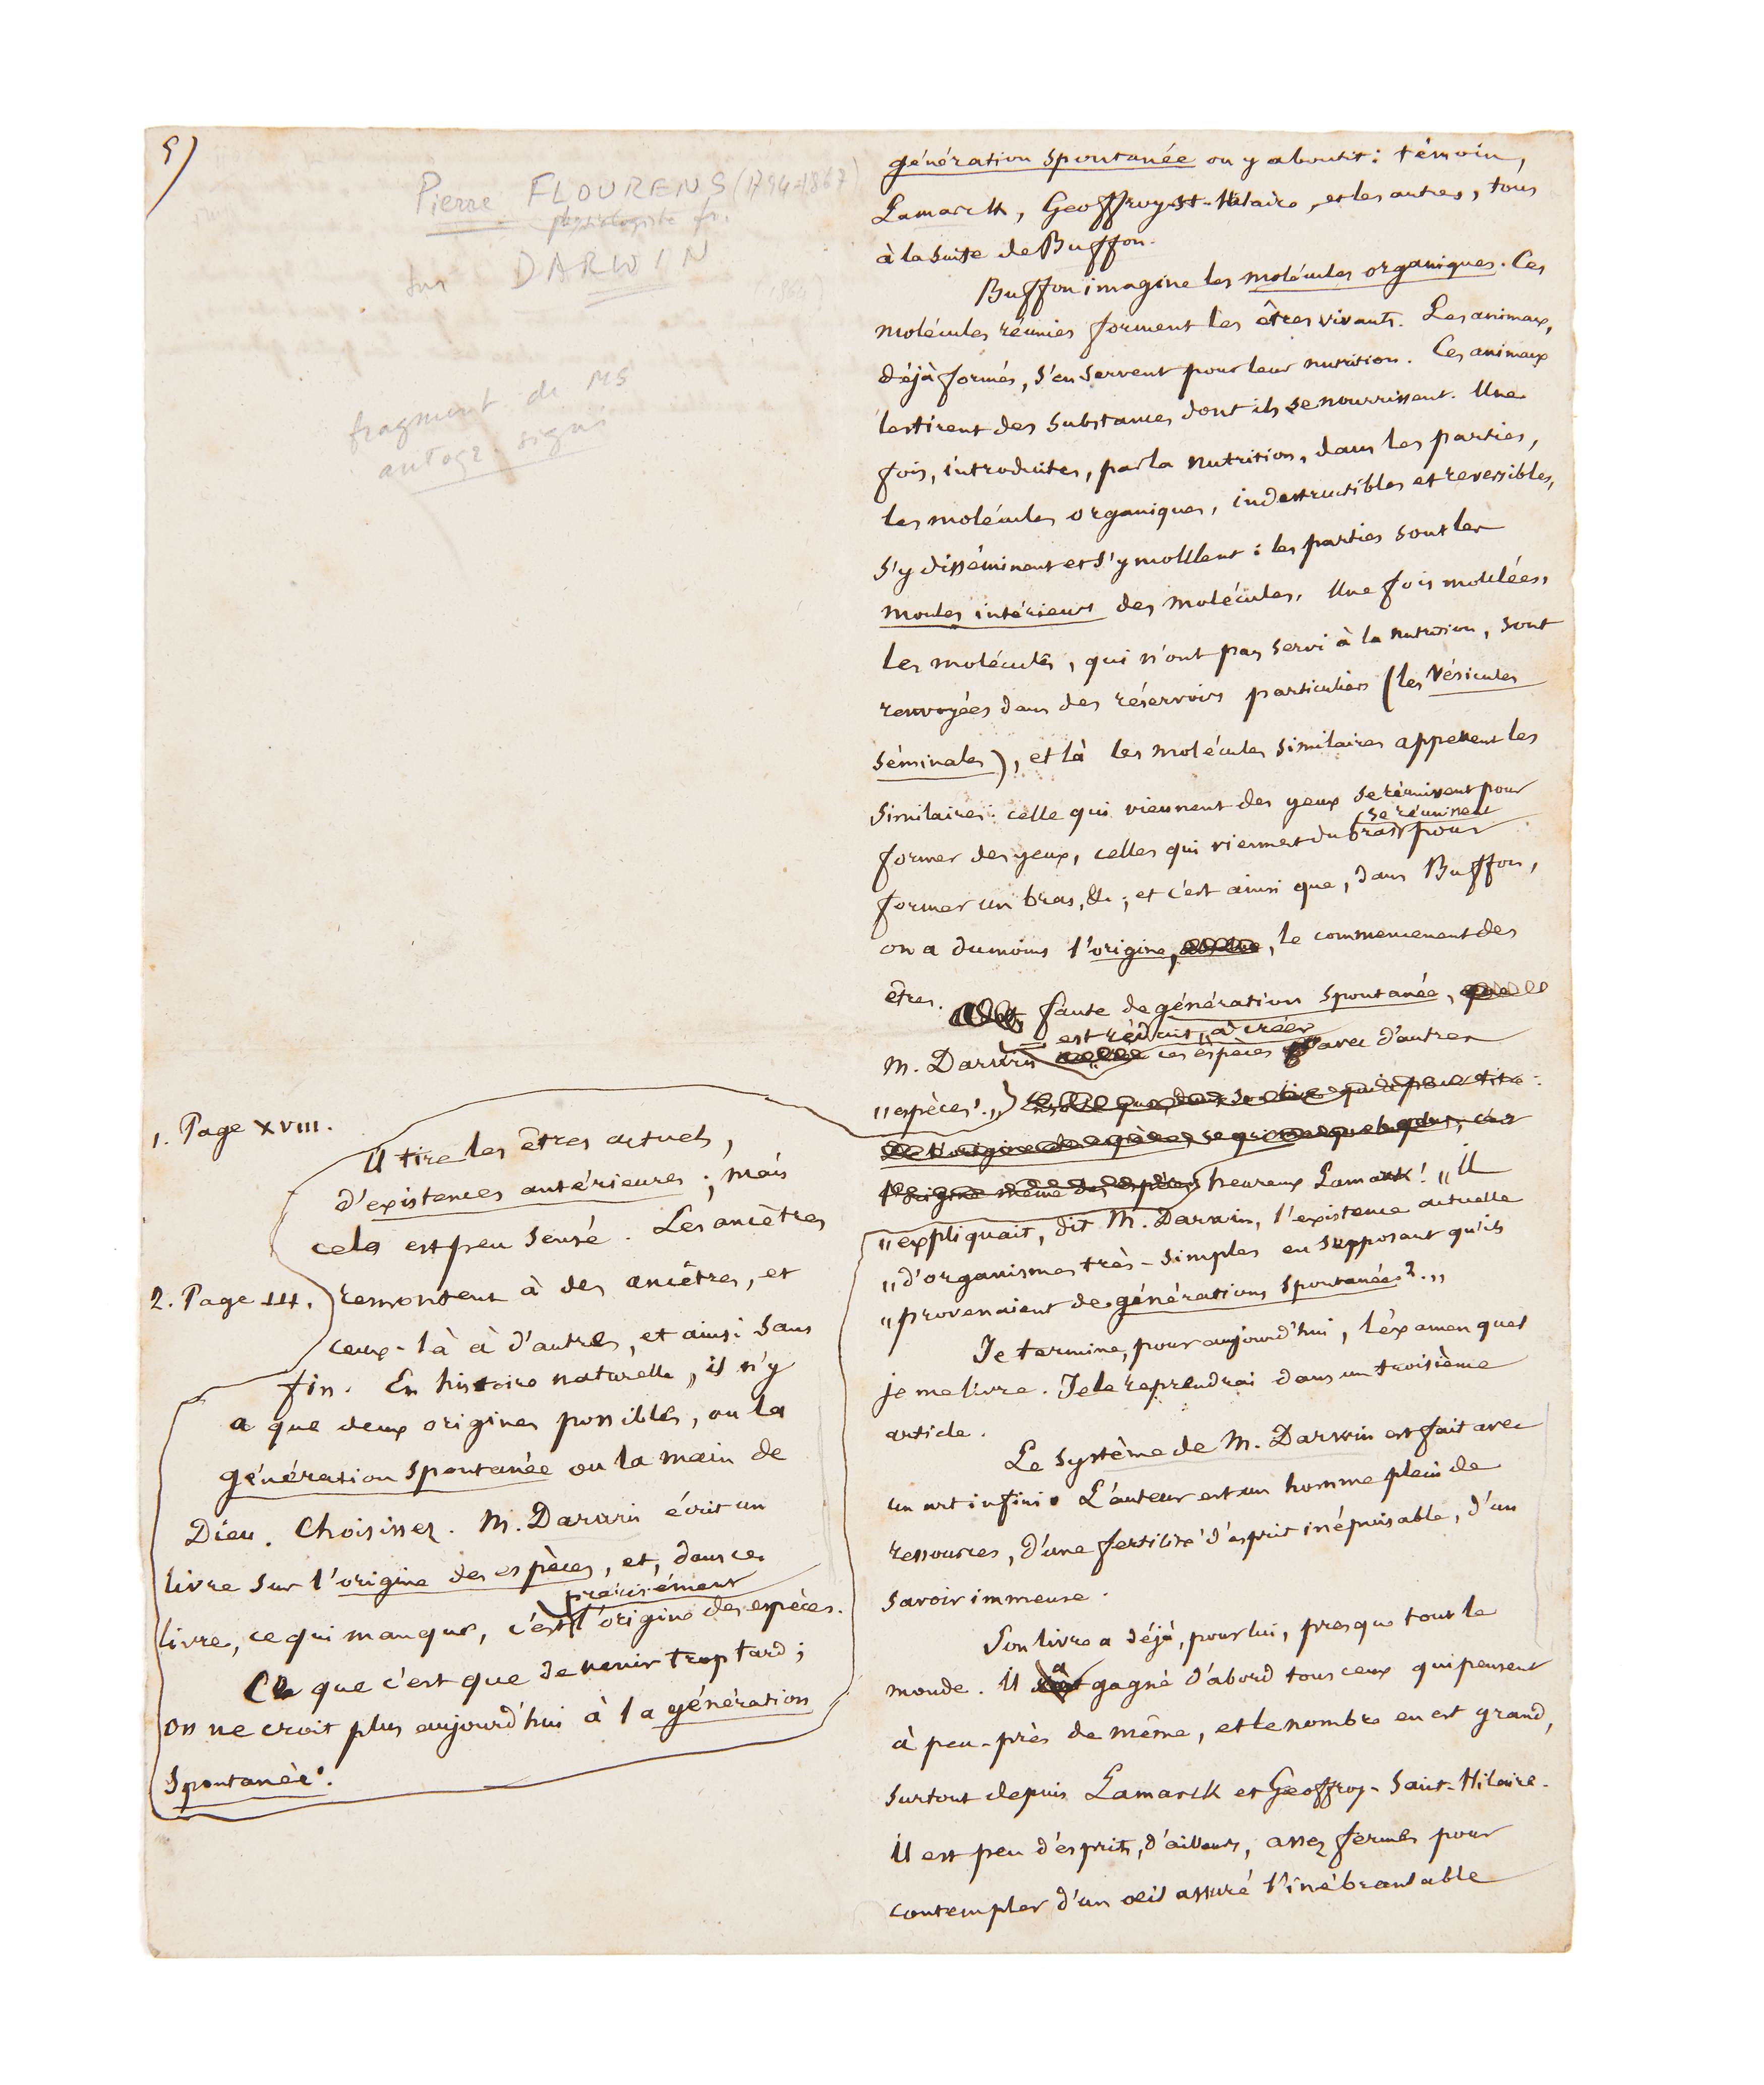 5)
Pierre FLOURENS (1794-1867)
physiologiste fr.
sur DARWIN
(1864)
fragment de MS
autogr. signé
génération spontanée on y aboutit : témoin,
Lamarck, Geoffroy-St-Hilaire, et les autres, tous
à la suite de Buffon.
Buffon imagine les molécules organiques. Ces
molécules réunies forment les êtres vivants. Les animaux,
déjà formés, s'en servent pour leur nutrition. Ces animaux
les tirent des substances dont ils se nourrissent. Une
fois, introduites, par la nutrition, dans les parties,
les molécules organiques, indestructibles et reversibles,
s'y disséminent et s'y moullent : les parties sont les
moules intérieurs des molécules. Une fois moulées,
les molécules, qui n'ont pas servi à la nutrition, sont
renvoyées dans des réservoirs particuliers (les vésicules
séminales), et là les molécules similaires appellent les
similaires : celle qui viennent des yeux se réunissent pour
former des yeux, celles qui viennent du bras se réunissent pour
former un bras, &c ; et c'est ainsi que, dans Buffon,
on a du moins l'origine, le commencement des
êtres.
faute de génération spontanée,
M. Darwin est réduit „à créer ces espèces avec d'autres
„espèces¹.„
heureux Lamark ! „Il
„expliquait, dit M. Darwin, l'existence actuelle
„d'organismes très-simples en supposant qu'ils
„provenaient de générations spontanées².„
Je termine, pour aujourd'hui, l'examen quel
je me livre. Je le reprendrai dans un troisième
article.
Le système de M. Darwin est fait avec
un art infini. L'auteur est un homme plein de
ressources, d'une fertilité d'esprit inépuisable, d'un
savoir immense.
Son livre a déjà, pour lui, presque tout le
monde. Il a gagné d'abord tous ceux qui pensent
à peu-près de même, et le nombre en est grand,
surtout depuis Lamarck et Geoffroy-Saint-Hilaire.
Il est peu d'esprits, d'ailleurs, assez fermes pour
contempler d'un œil assuré l'inébranlable
1. Page XVIII.
Il tire les êtres actuels,
d'existences antérieures ; mais
cela est peu sensé. Les ancêtres
2. Page III.
remontent à des ancêtres, et
ceux-là à d'autres, et ainsi sans
fin. En histoire naturelle, il n'y
a que deux origines possibles, ou la
génération spontanée ou la main de
Dieu. Choisissez. M. Darwin écrit un
livre sur l'origine des espèces, et, dans ce
livre, ce qui manque, c'est précisément l'origine des espèces.
Ce que c'est que de venir trop tard ;
on ne croit plus aujourd'hui à la génération
spontanée.